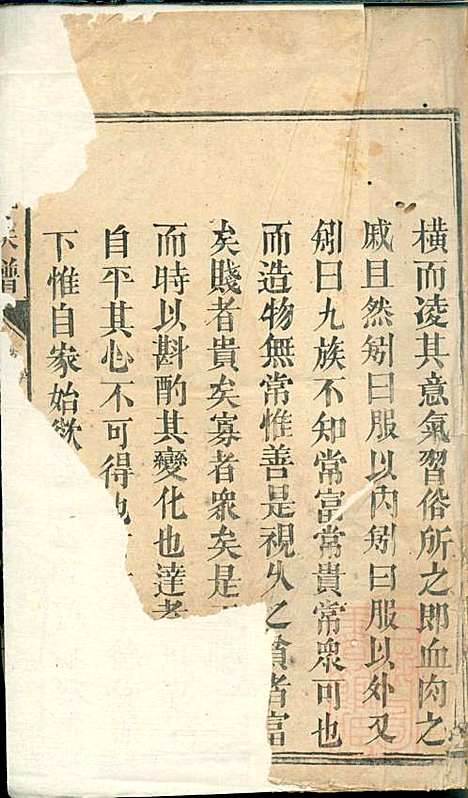 橫而凌其意氣習俗所之即血肉之
戚且然矧曰服以內矧曰服以外又
矧曰九族不知常富常貴常眾可也
而造物無常惟善是視久之貧者富
矣賤者貴矣寡者衆矣是
而時以斟酌其變化也達者
自平其心不可得也
下惟自家始欲
族譜